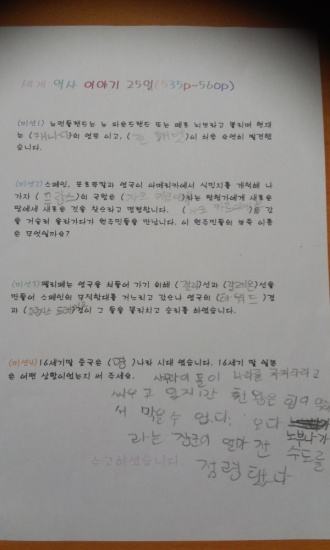 세계 역사 이야기 25일(535p-560p)
(미션1) 뉴펀들랜드는 뉴 파운드랜드 또는 테르 뇌브라고 불리며 현재
는 (캐나다)의 영토 이고, (존 캐벗)이 처음 우연히 발견했
습니다.
(미션2) 스페인, 포르투갈과 영국이 아메리카에서 식민지를 개척해 나
가자 (프랑스)의 국왕은 (자크 카르티에)라는 탐험가에게 새로운
땅에서 새로운 것을 찾으라고 명령합니다. (자크 카르티에)는 강
을 거슬러 올라가다가 원주민들을 만납니다. 이 원주민들의 부족 이름
은 무엇일까요?
(미션3) 펠리페는 영국을 쳐들어 가기 위해 (갤리)선과 (갤리온)선을
만들어 스페인의 무적함대를 거느리고 갔으나 영국의 (하워드)경
과 (프랜시스 드레이크)경이 그 들을 물리치고 승리를 하였습니다.
(미션4) 16세기말 중국은 (명)나라 시대 였습니다. 16세기 말 일본
은 어떤 상황이었는지 써 주세요. 사무라이들이 나라를 차지하려고
싸우고 있지만 천왕은 힘이 약해
서 막을 수 없다. 오다
노부나가
라는 장군이 얼마 간 수도를
수고하셨습니다. 점령했다